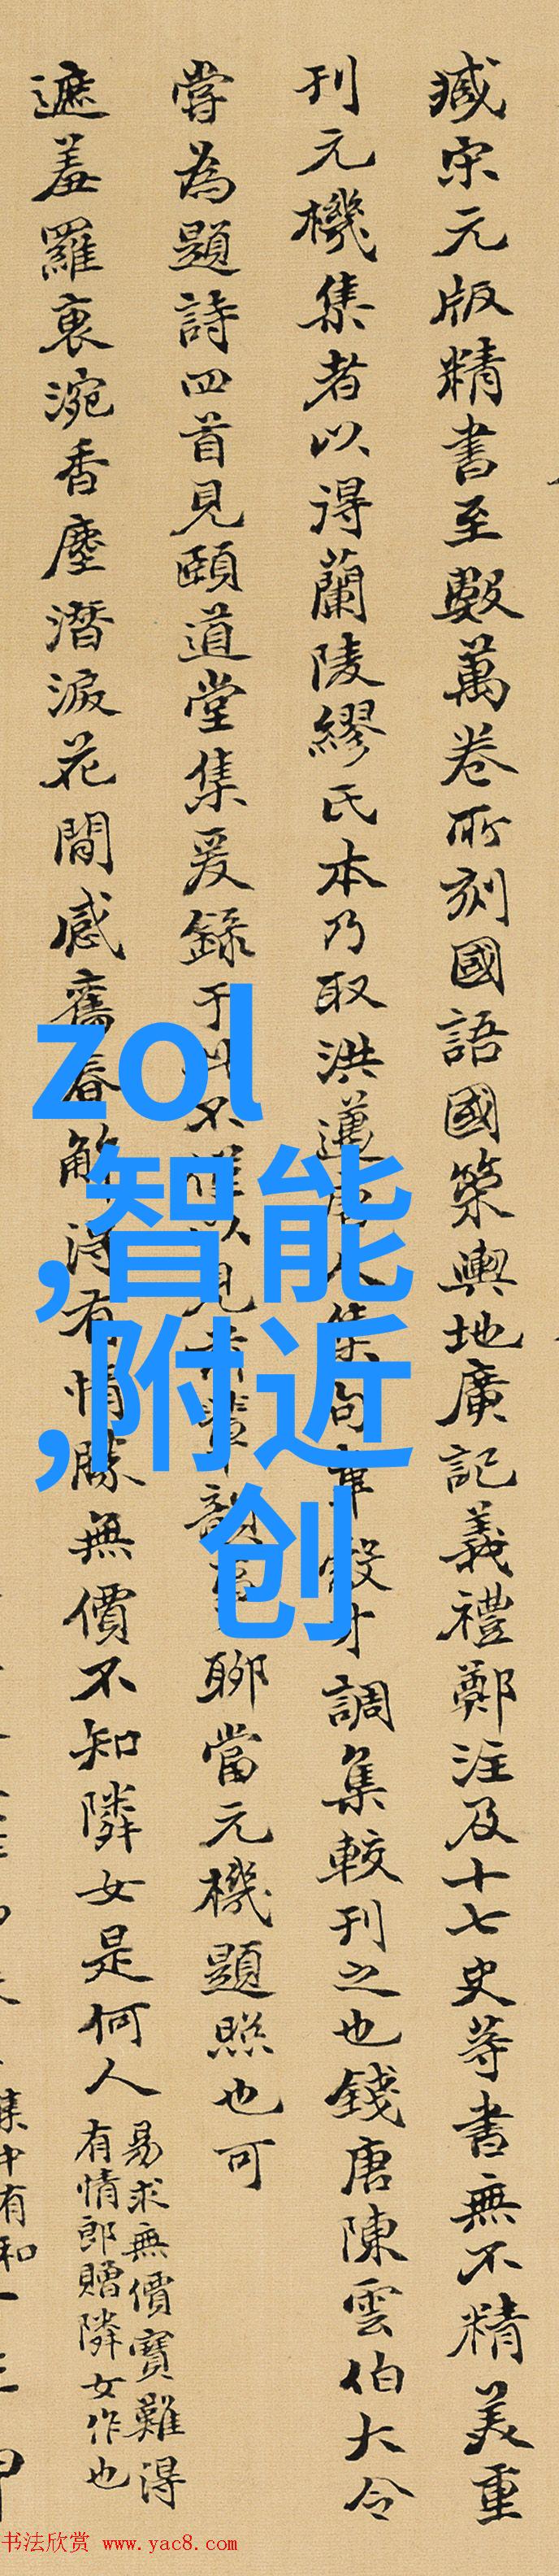 臧宋元版精書至數萬卷所刻國語國策輿地廣記義禮鄭注及十七史等書無不精美重
刊元機集者以得蘭陵繆氏本乃取洪邁唐人集句韋縠才調集較刊之也錢唐陳雲伯大令
嘗為題詩四首見頤道堂集爰錄于此不以見聊當元機題照也可
遮羞羅裏涴香塵潛淚花間感舊春解得有情勝無價不知隣女是何人
易求無價寶難得
有情郎贈隣女作也
集中有和一
zol
,智能
,附近
创
书法欣赏 www.yac8.com